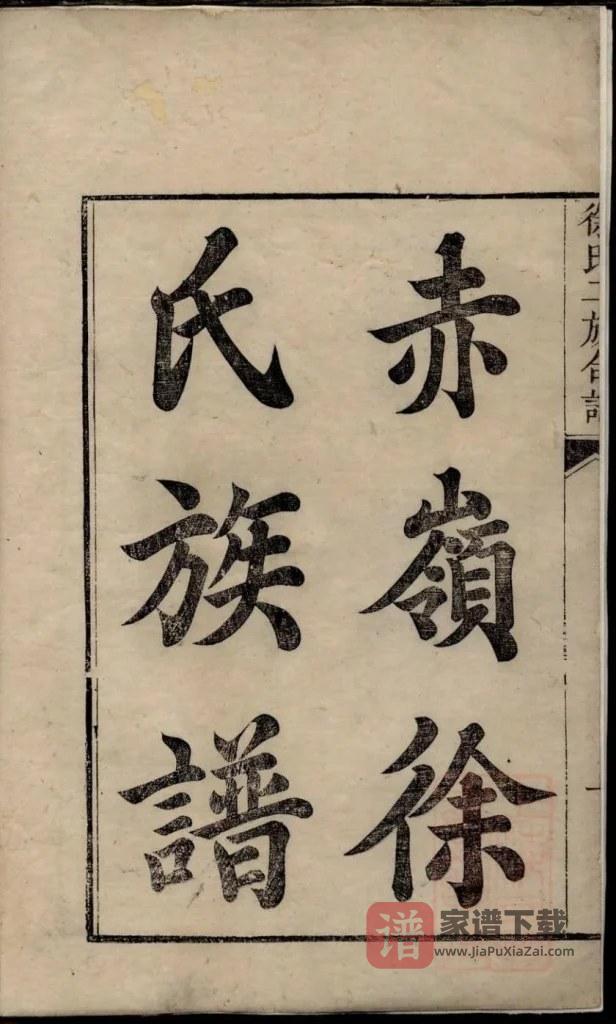 赤嶺徐
氏族譜
徐氏二族合譜
一
谱
家谱下载
www.JiaPuXiaZai.com